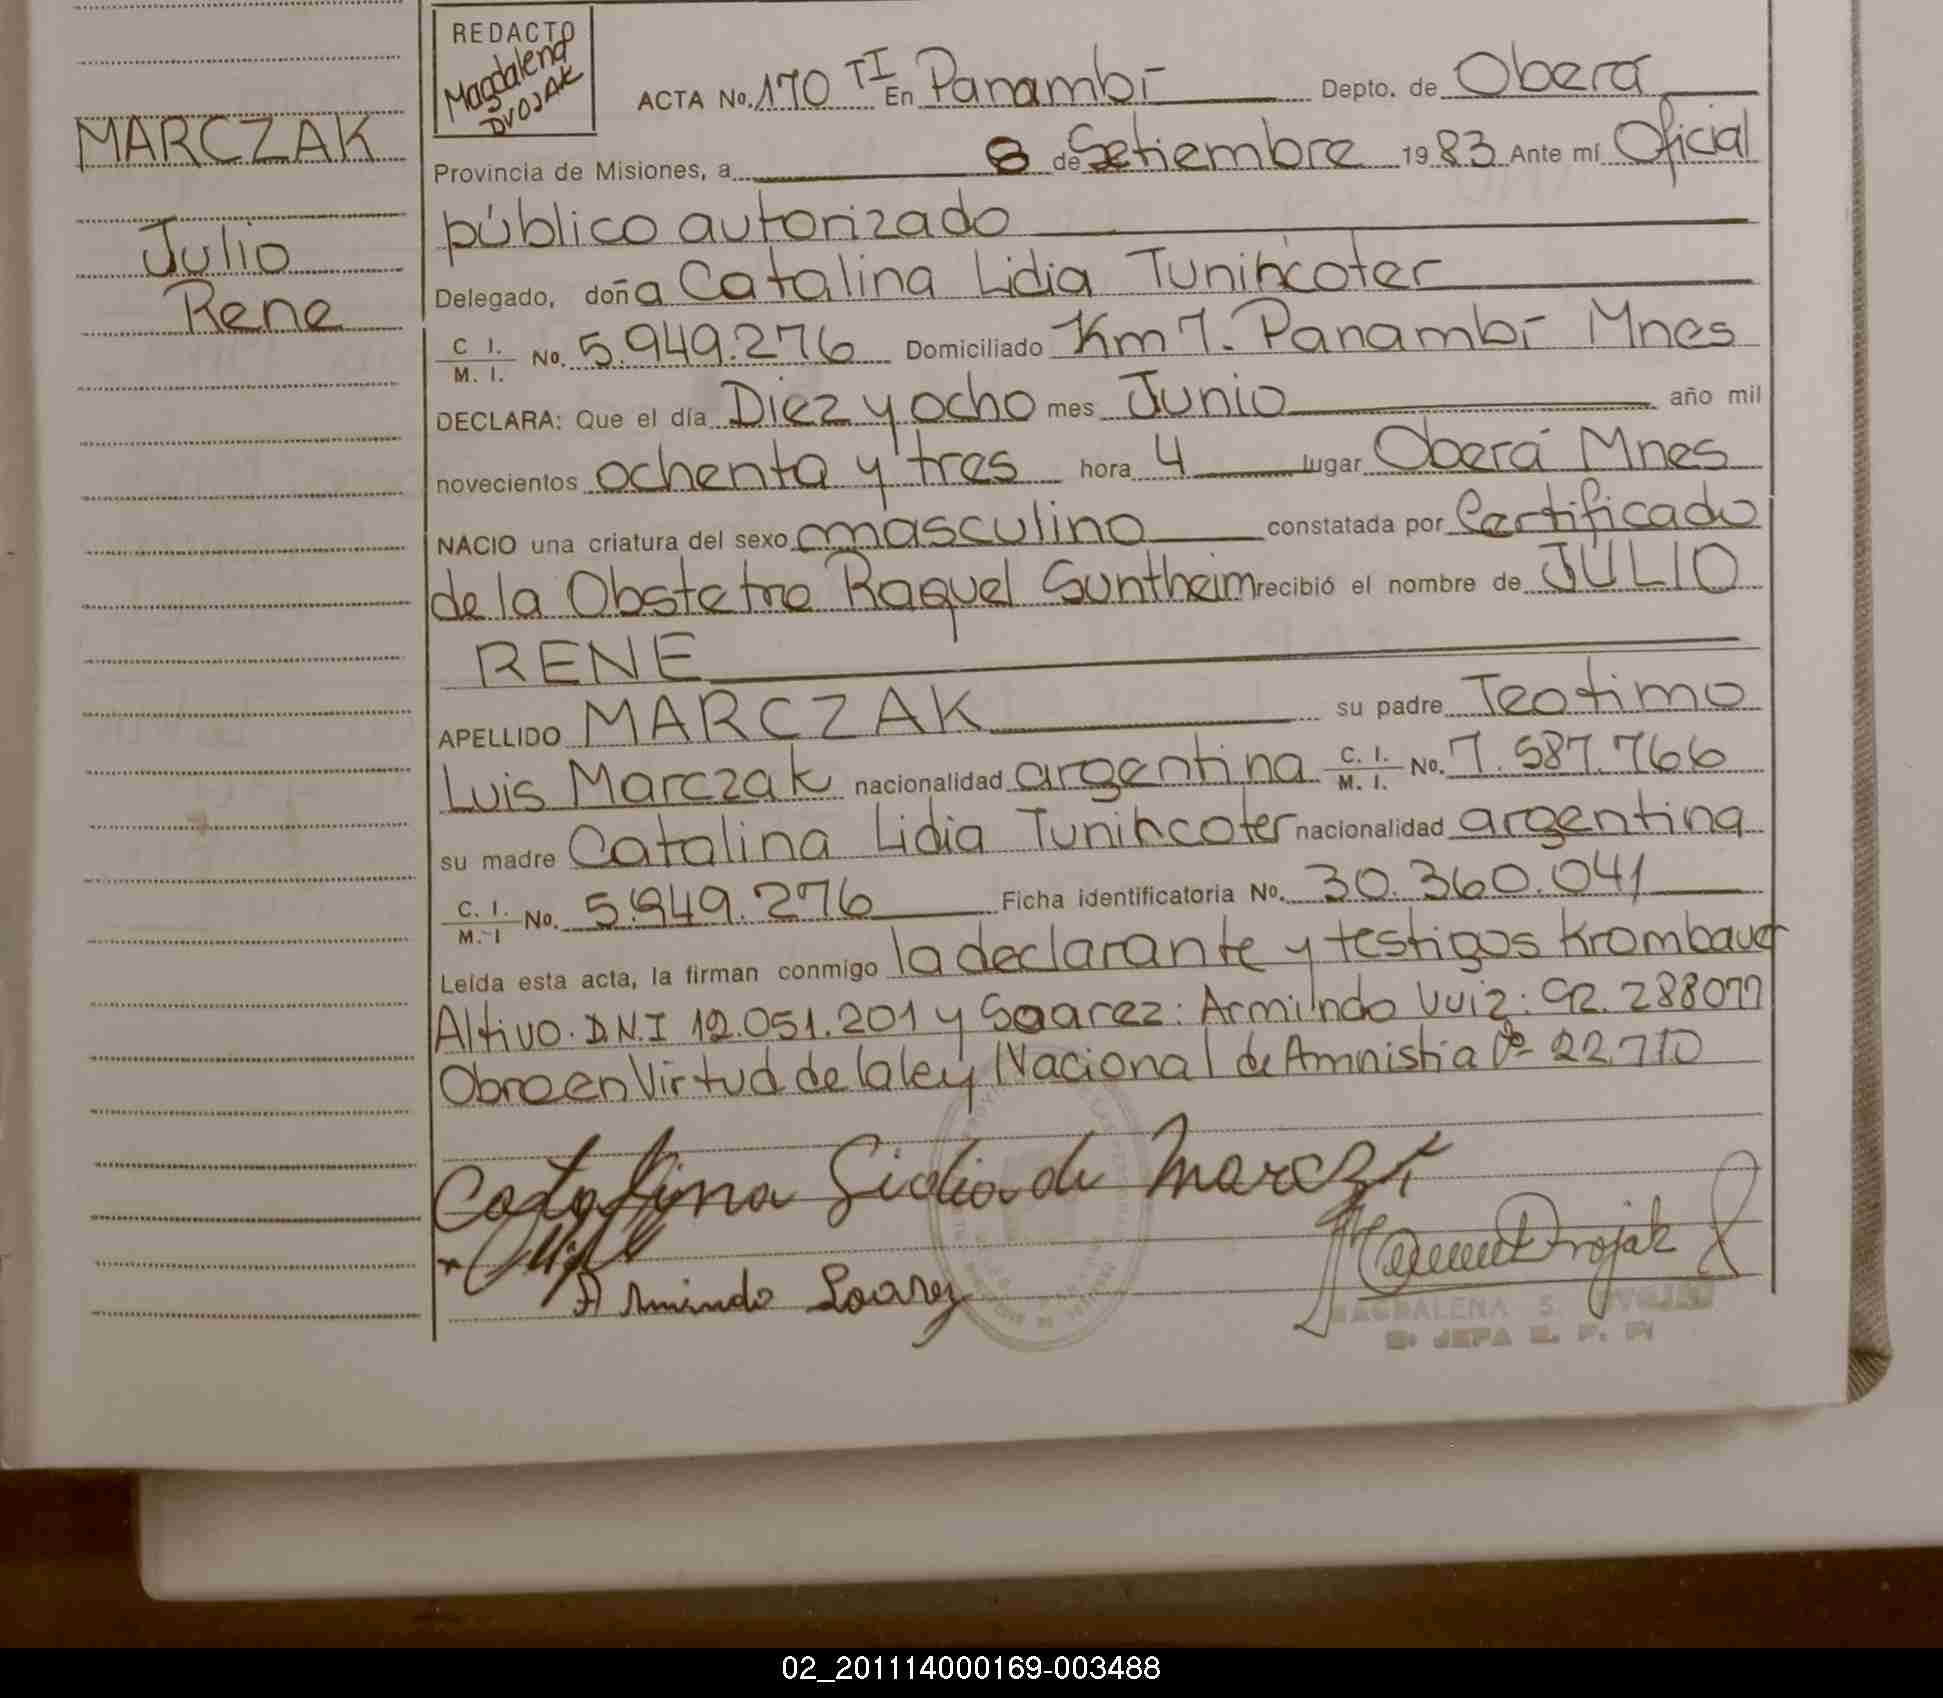 MARCZAK
Julio
Rene
REDACTO
Magdalena
DVOJAK
ACTA No. 170 TI En Panambí Depto. de Oberá
Provincia de Misiones, a 8 de Setiembre 1983 Ante mí Oficial
público autorizado
Delegado, doña Catalina Lidia Tunihcoter
C I. M. I. No. 5.949.276 Domiciliado Km 7. Panambí Mnes
DECLARA: Que el día Diez y ocho mes Junio año mil
novecientos ochenta y tres hora 4 lugar Oberá Mnes
NACIO una criatura del sexo masculino constatada por Certificado
de la Obstetra Raquel Suntheim recibió el nombre de JULIO
RENE
APELLIDO MARCZAK su padre Teotimo
Luis Marczak nacionalidad argentina C. I. M. I. No. 7.587.766
su madre Catalina Lidia Tunihcoter nacionalidad argentina
C. I. M. I No. 5.949.276 Ficha identificatoria No. 30.360.041
Leída esta acta, la firman conmigo la declarante y testigos Krombauer
Altivo. D.N.I 12.051.201 y Soarez: Armindo Vuiz: CR. 288077
Obro en Virtud de la ley Nacional de Amnistia Nº 22.710
Catalina Lidia de Marczak
Armindo Soarez
Dvojak
MAGDALENA S. DVOJAK